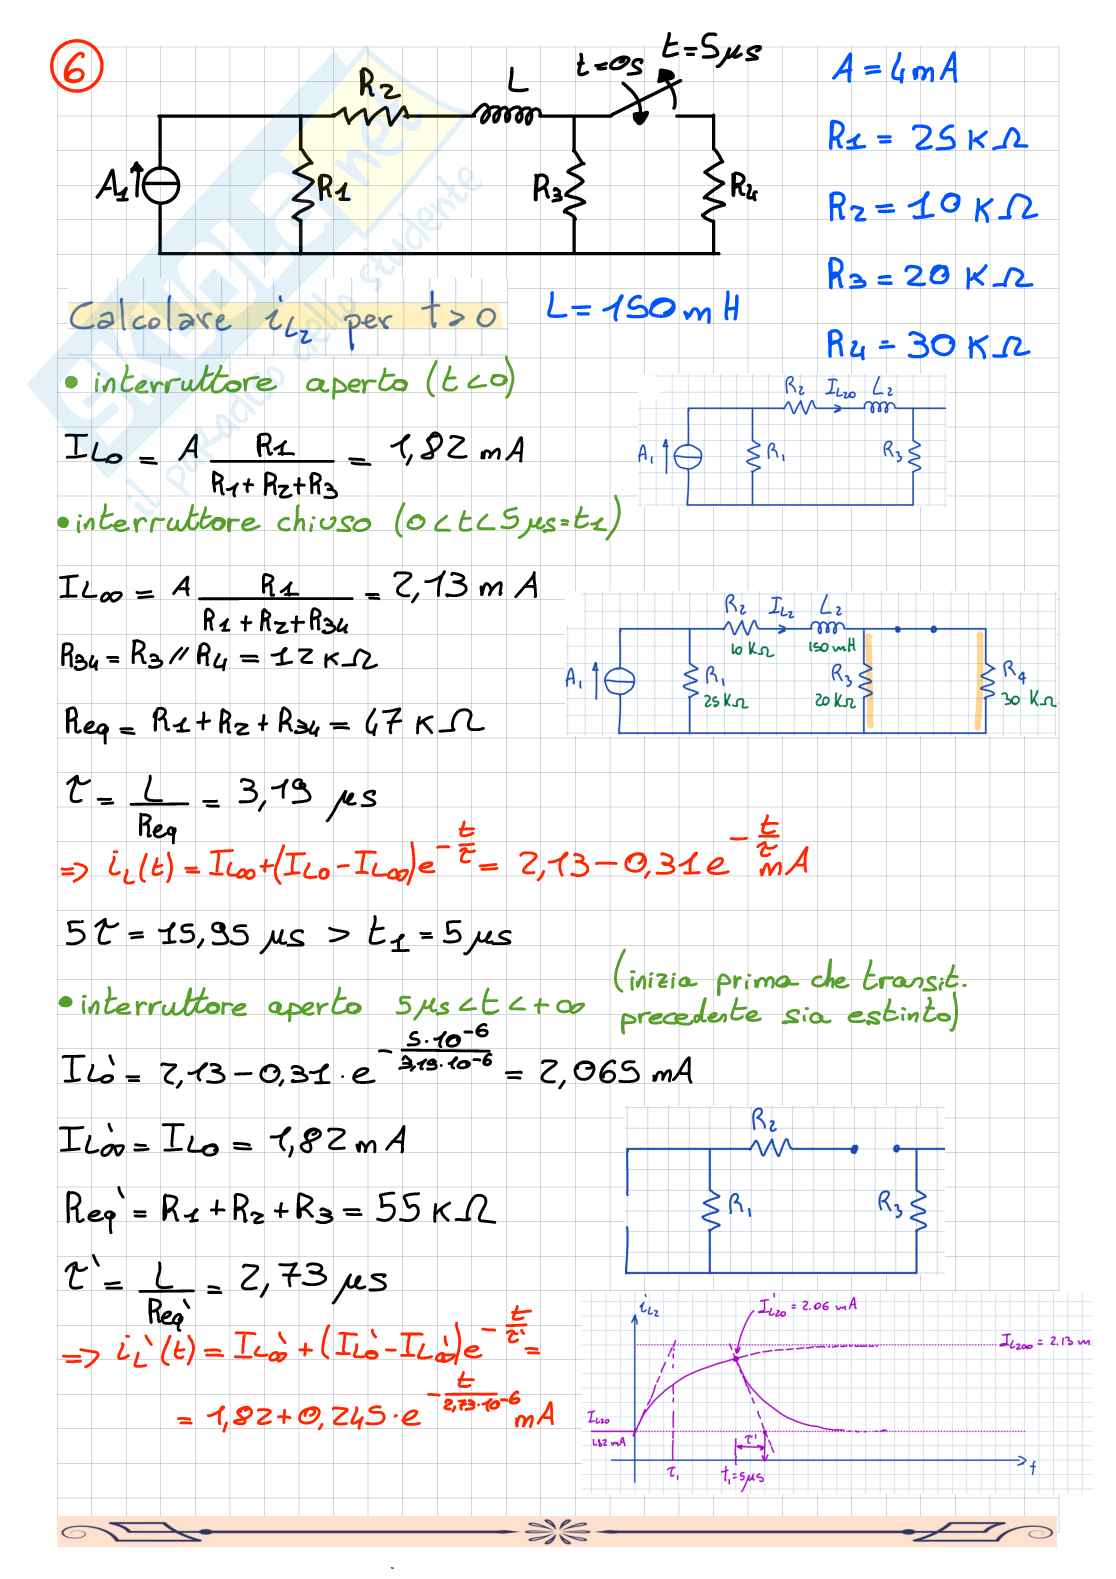 6
t=0s t=5μs
R2 L
A1 R1 R3 R4
A = 4mA
R1 = 25 KΩ
R2 = 10 KΩ
R3 = 20 KΩ
R4 = 30 KΩ
Calcolare iL2 per t>0 L = 150 mH
• interruttore aperto (t<0)
IL0 = A R1/(R1+R2+R3) = 1,82 mA
R2 IL20 L2
A1 R1 R3
• interruttore chiuso (0<t<5μs=t1)
IL∞ = A R1/(R1+R2+R34) = 2,13 mA
R34 = R3//R4 = 12 KΩ
R2 IL2 L2
10 KΩ 150 mH
A1 R1 R3 R4
25 KΩ 20 KΩ 30 KΩ
Req = R1+R2+R34 = 47 KΩ
τ = L/Req = 3,19 μs
=> iL(t) = IL∞+(IL0-IL∞)e^-t/τ = 2,13-0,31e^-t/τ mA
5τ = 15,95 μs > t1 = 5μs
• interruttore aperto 5μs<t<+∞ (inizia prima che transit.
precedente sia estinto)
IL0' = 2,13-0,31·e^-5·10^-6/3,19·10^-6 = 2,065 mA
IL∞' = IL0 = 1,82 mA
R2
R1 R3
Req' = R1+R2+R3 = 55 KΩ
τ' = L/Req' = 2,73 μs
=> iL'(t) = IL∞'+(IL0'-IL∞')e^-t/τ' =
= 1,82+0,245·e^-t/2,73·10^-6 mA
iL2 I'L20 = 2.06 mA
IL2∞ = 2.13 m
IL20
1.82 mA
τ'
τ1 t1=5μs t
SKUOLA.net
il paradiso dello studente